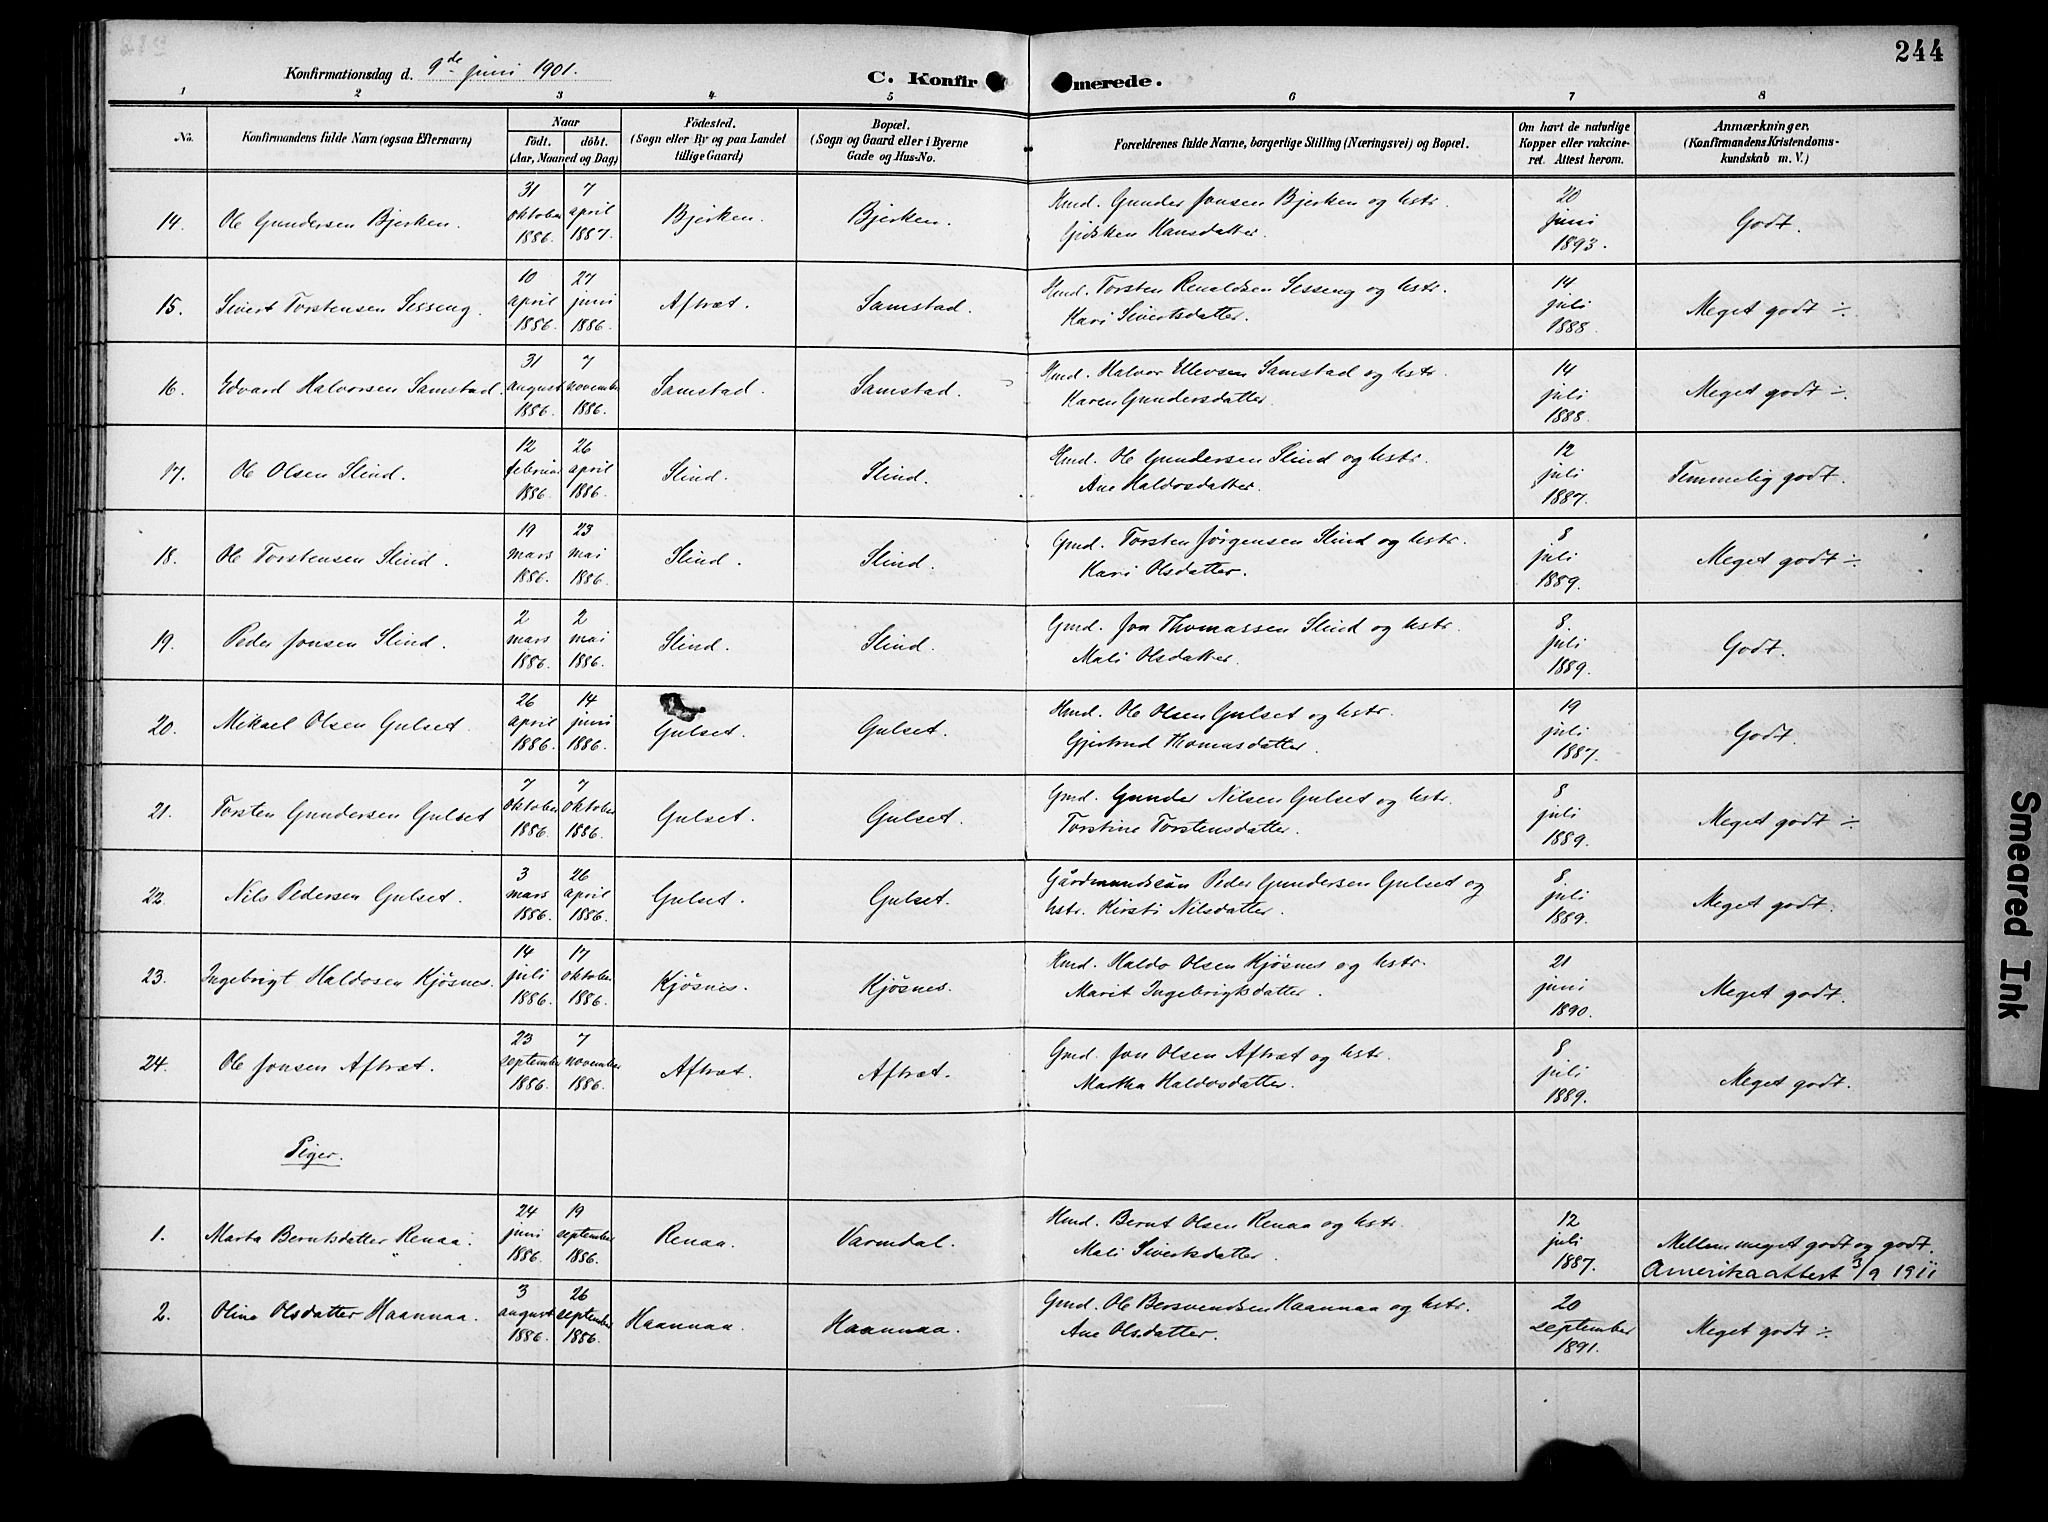 244
Konfirmationsdag d. 9de juni 1901.
C. Konfirmerede.
1 2 3 4 5 6 7 8
No.
Konfirmandens fulde Navn (ogsaa Efternavn)
Naar
födt. döbt.
(Aar, Maaned og Dag)
Födested.
(Sogn eller By og paa Landet
tillige Gaard)
Bopæl.
(Sogn og Gaard eller i Byerne
Gade og Hus-No.
Forældrenes fulde Navne, borgerlige Stilling (Næringsvei) og Bopæl.
Om havt de naturlige
Kopper eller vakcine-
ret. Attest herom.
Anmærkninger.
(Konfirmandens Kristendoms-
kundskab m. V.)
14. Ole Gundersen Bjerken. 31 oktober 1886. 7 april 1887. Bjerken. Bjerken. Hmd. Gunder Jonsen Bjerken og hstr.
Gjidsken Hansdatter. 20 juni 1893. Godt.
15. Sivert Torstensen Sesseng. 10 april 1886. 27 juni 1886. Aftræt. Samstad. Hmd. Torsten Renaldsen Sesseng og hstr.
Kari Sivertsdatter. 14 juli 1888. Meget godt ÷.
16. Edvard Halvorsen Samstad. 31 august 1886. 7 november 1886. Samstad. Samstad. Hmd. Halvor Ellevsen Samstad og hstr.
Karen Gundersdatter. 14 juli 1888. Meget godt ÷.
17. Ole Olsen Slind. 12 februar 1886. 26 april 1886. Slind. Slind. Hmd. Ole Gundersen Slind og hstr.
Ane Haldosdatter. 12 juli 1887. Temmelig godt.
18. Ole Torstensen Slind. 19 mars 1886. 23 mai 1886. Slind. Slind. Gmd. Torsten Jørgensen Slind og hstr.
Kari Olsdatter. 8 juli 1889. Meget godt ÷.
19. Peder Jonsen Slind. 2 mars 1886. 2 mai 1886. Slind. Slind. Gmd. Jon Thomassen Slind og hstr.
Mali Olsdatter. 8. juli 1889. Godt.
20. Mikael Olsen Gulset. 26 april 1886. 14 juni 1886. Gulset. Gulset. Hmd. Ole Olsen Gulset og hstr.
Gjertrud Thomasdatter. 19 juli 1887. Godt.
21. Torsten Gundersen Gulset 7 oktober 1886. 7 oktober 1886. Gulset. Gulset. Gmd. Gunder Nilsen Gulset og hstr.
Torstine Torstensdatter. 8 juli 1889. Meget godt ÷.
22. Nils Pedersen Gulset. 3 mars 1886. 26 april 1886. Gulset. Gulset. Gårdmandssøn Peder Gundersen Gulset og
hstr. Kirsti Nilsdatter. 8. juli 1889. Meget godt.
23. Ingebrigt Haldosen Kjøsnes. 14 juli 1886. 17 oktober 1886. Kjøsnes. Kjøsnes. Hmd. Haldo Olsen Kjøsnes og hstr.
Marit Ingebrigtsdatter. 21 juni 1890. Meget godt.
24. Ole Jonsen Aftræt. 23 september 1886. 7 november 1886. Aftræt. Aftræt. Gmd. Jon Olsen Aftræt og hstr.
Martha Haldosdatter. 8 juli 1889. Meget godt.
Piger.
1. Marta Berntsdatter Renaa. 24 juni 1886. 19 september 1886. Renaa. Varmdal. Hmd. Bernt Olsen Renaa og hstr.
Mali Sivertsdatter. 12 juli 1887. Mellem meget godt og godt.
Amerikaattest 3/9 1911
2. Oline Olsdatter Haannaa. 3 august 1886. 26 september 1886. Haannaa. Haannaa. Gmd. Ole Bersvendsen Haannaa og hstr.
Ane Olsdatter. 20 september 1891. Meget godt ÷.
Smeared Ink